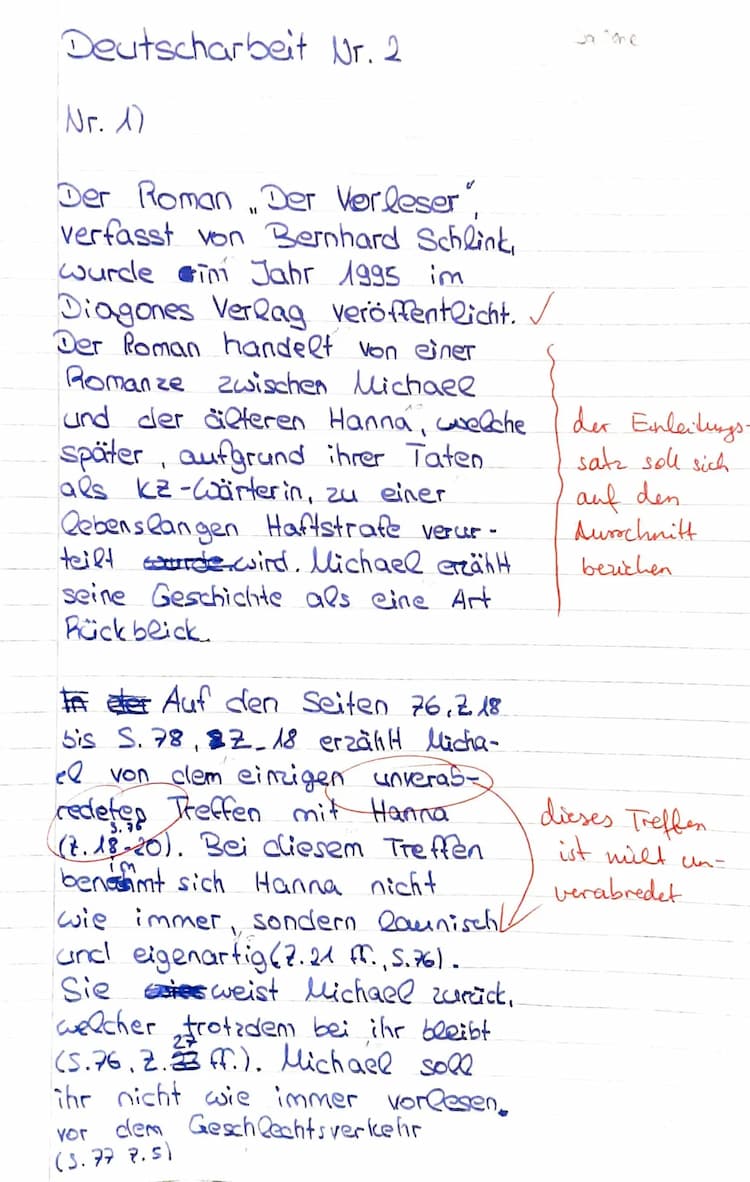 Deutscharbeit Nr. 2
Nr. 1)
Der Roman „Der Vorleser“,
verfasst von Bernhard Schlink,
wurde im Jahr 1995 im
Diagones Verlag veröffentlicht. ✓
Der Roman handelt von einer
Romanze zwischen Michael
und der älteren Hanna, welche
später, aufgrund ihrer Taten
als KZ-Wärterin, zu einer
lebenslangen Haftstrafe verur-
teilt wurde wird. Michael erzählt
seine Geschichte als eine Art
Rückblick.
der Einleitungs-
satz soll sich
auf den
Ausschnitt
beziehen
In der Auf den Seiten 76, Z 18
bis S. 78, Z. 18 erzählt Micha-
el von dem einzigen unverab-
redeten Treffen mit Hanna
(Z. 18-20). Bei diesem Treffen
S. 76
benimmt sich Hanna nicht
wie immer, sondern launisch
und eigenartig (Z. 21 ff., S. 76).
Sie weist Michael zurück,
welcher trotzdem bei ihr bleibt
(S. 76, Z. 27 ff.). Michael soll
ihr nicht wie immer vorlesen.
vor dem Geschlechtsverkehr
(S. 77 Z. 5)
dieses Treffen
ist nicht un-
verabredet